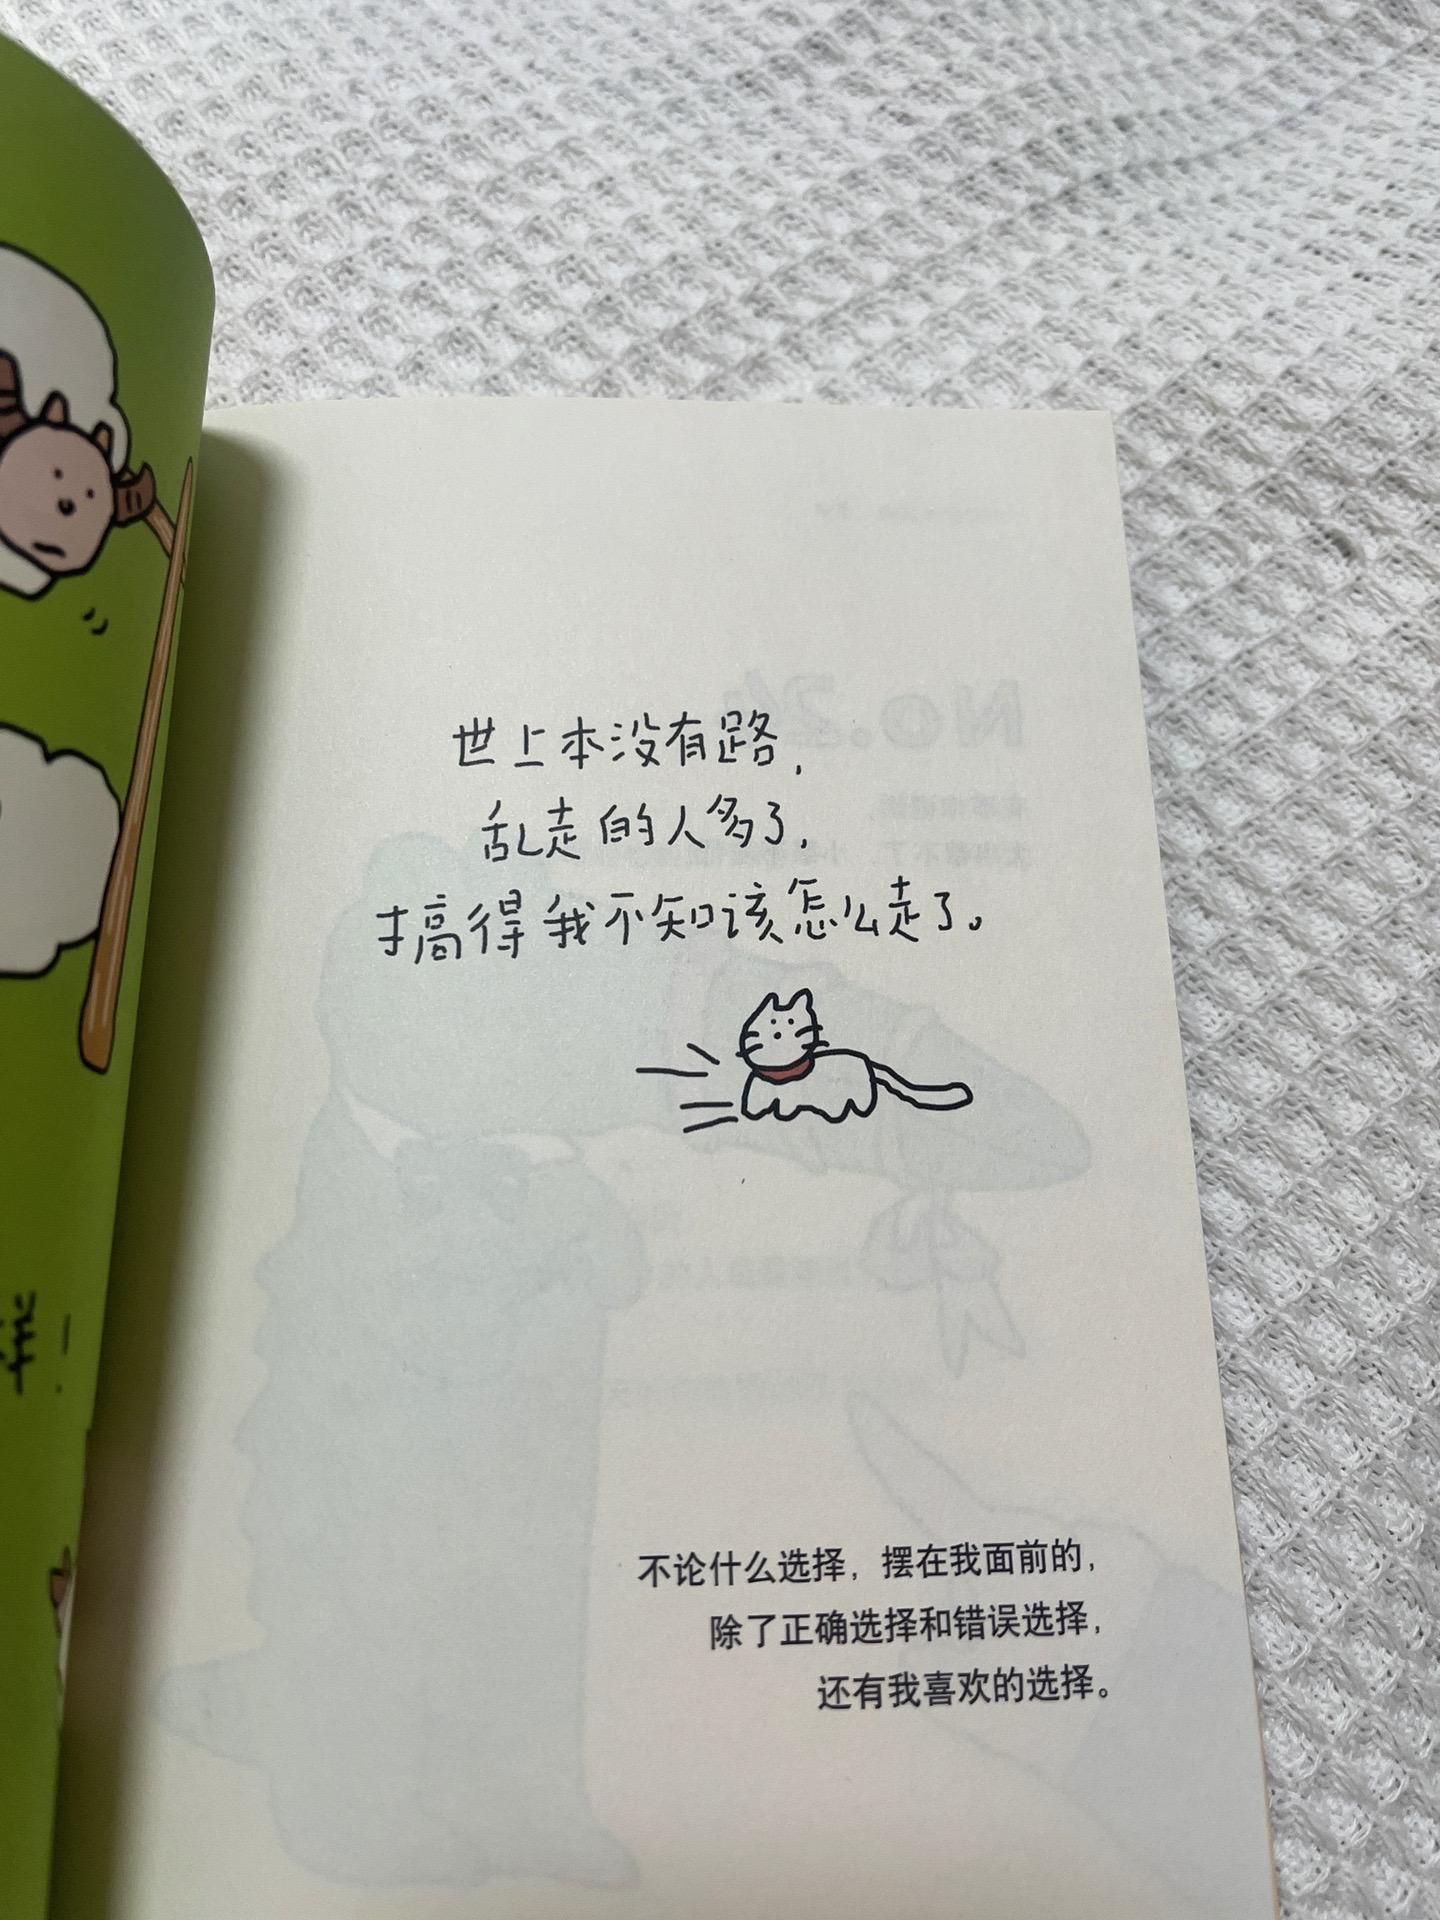 世上本没有路,
乱走的人多了,
搞得我不知该怎么走了。
不论什么选择，摆在我面前的，
除了正确选择和错误选择，
还有我喜欢的选择。